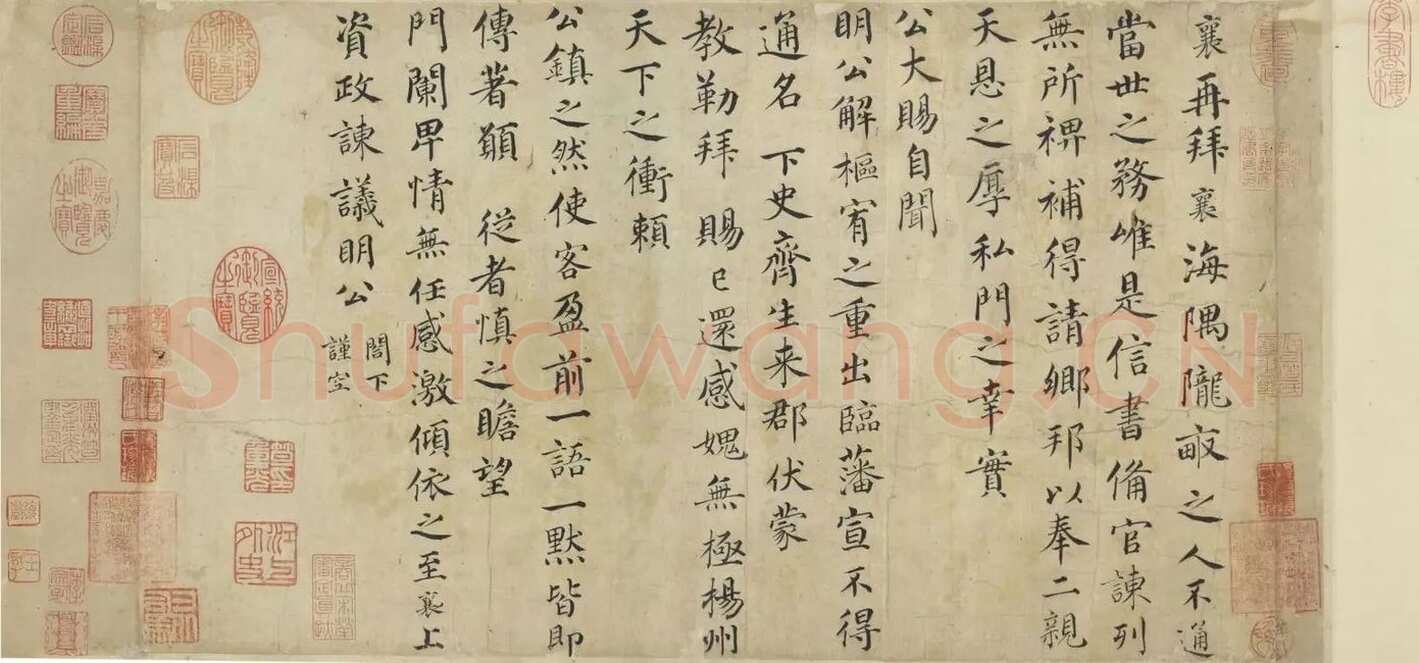 襄再拜襄海隅隴畝之人不通
當世之務唯是信書備官諫列
無所裨補得請鄉邦以奉二親
天恩之厚私門之幸實
公大賜自聞
明公解樞宥之重出臨藩宣不得
通名 下史齊生来郡伏蒙
教勒拜 賜已還感媿無極楊州
天下之衝賴
公鎮之然使客盈前一語一黙皆即
傳著顓 從者慎之瞻望
門闌卑情無任感激傾依之至襄上
資政諫議明公
閤下
謹空
乾隆御覽之寶
石渠寶笈
宣統御覽之寶
江上外史
嘉慶御覽之寶
Shufawang.CN